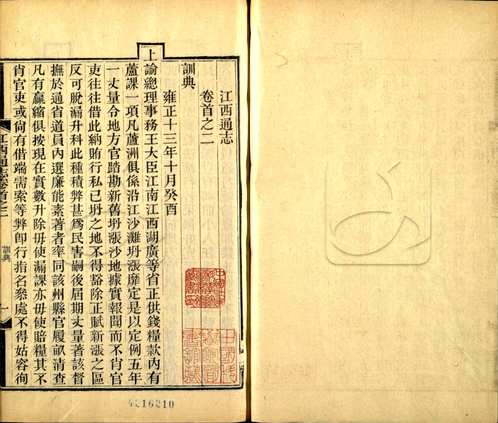 江西通志
卷首之二
訓典
雍正十三年十月癸酉
上諭總理事務王大臣江南江西湖廣等省正供錢糧款內有
蘆課一項凡蘆洲俱係沿江沙灘坍漲靡定是以定例五年
一丈量令地方官踏勘新舊坍漲沙地據實報聞而不肖官
吏往往借此納賄行私已坍之地不得豁除正賦新漲之區
反可脫漏升科此種積弊甚為民害嗣後屆期丈量著該督
撫於通省道員內選廉能素著者率同該州縣官履畝清查
凡有贏縮俱按現在實數升除毋使漏課亦毋使賠糧其不
肖官吏或尚有借端需索等弊即行指名叅處不得姑容徇
江西通志卷首之二
訓典
一
4216210